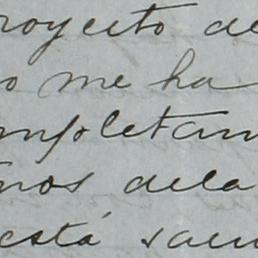 royecto de
o me ha
mpletam
nos dela
está sau